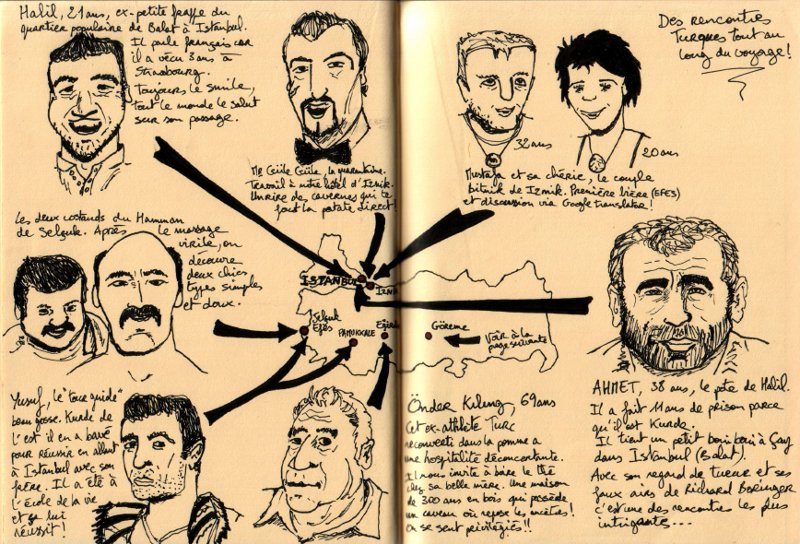 Halil, 21 ans, ex-petite frappe du
quartier populaire de Balat à Istanbul.
Il parle français car
il a vécu 3 ans à
Strasbourg.
Toujours le smile,
tout le monde le salut
sur son passage.
Mr Güle Güle, la quarantaine.
Travail à notre hôtel d'Iznik.
Un rire des cavernes qui te
fout la patate direct!
32 ans
20 ans
Mustafa et sa chérie, le couple
bitnik de Iznik. Première bière (EFES)
et discussion via Google translater!
Des rencontres
Turques tout au
long du voyage!
Les deux costauds du Hammam
de Selçuk. Après le massage
virile, on
découvre
deux chics
types simples
et doux.
ISTANBUL
IZNIK
Selçuk
Efès
PAMUKKALE
Göreme
Voir à la
page suivante
Yusuf, le "tour guide"
beau gosse. Kurde de
l'est il en a bavé
pour réussir en allant
à Istanbul avec son
frère. Il a été à
l'école de la vie
et ça lui
réussit!
Önder Kılınç, 69 ans
Cet ex-athlète Turc
reconverti dans la pomme a
une hospitalité déconcertante.
Il nous invite à boire le thé
chez sa belle mère. Une maison
de 300 ans en bois qui possède
un caveau où repose les ancêtres!
On se sent privilégiés!!
AHMET, 38 ans, le pote de Halil.
Il a fait 11 ans de prison parce
qu'il est Kurde.
Il tient un petit boui boui à Çay
dans Istanbul (Balat).
Avec son regard de tueur et ses
faux airs de Richard Boringer
c'est une des rencontres les plus
intrigantes...